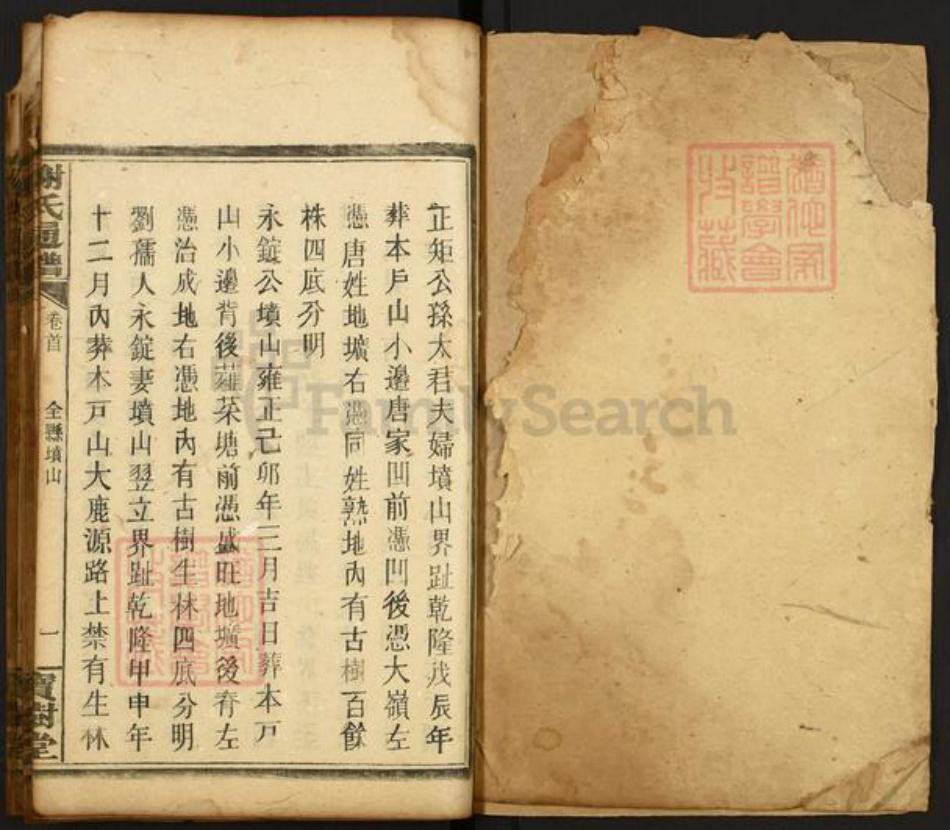 正矩公孫太君夫婦墳山界趾乾隆戊辰年
葬本戶山小邊唐家凹前憑凹後憑大嶺左
憑唐姓地壙右憑同姓熟地內有古樹百餘
株四底分明
永錠公墳山雍正己卯年三月吉日葬本戶
山小邊背後蕹菜塘前憑盛旺地壙後脊左
憑治成地右憑地內有古樹生林四底分明
劉孺人永錠妻墳山翌立界趾乾隆甲申年
十二月內葬本戶山大鹿源路上禁有生林
謝氏通譜
卷首
全縣墳山
一
寶樹堂
譜學會
收藏
FamilySearch